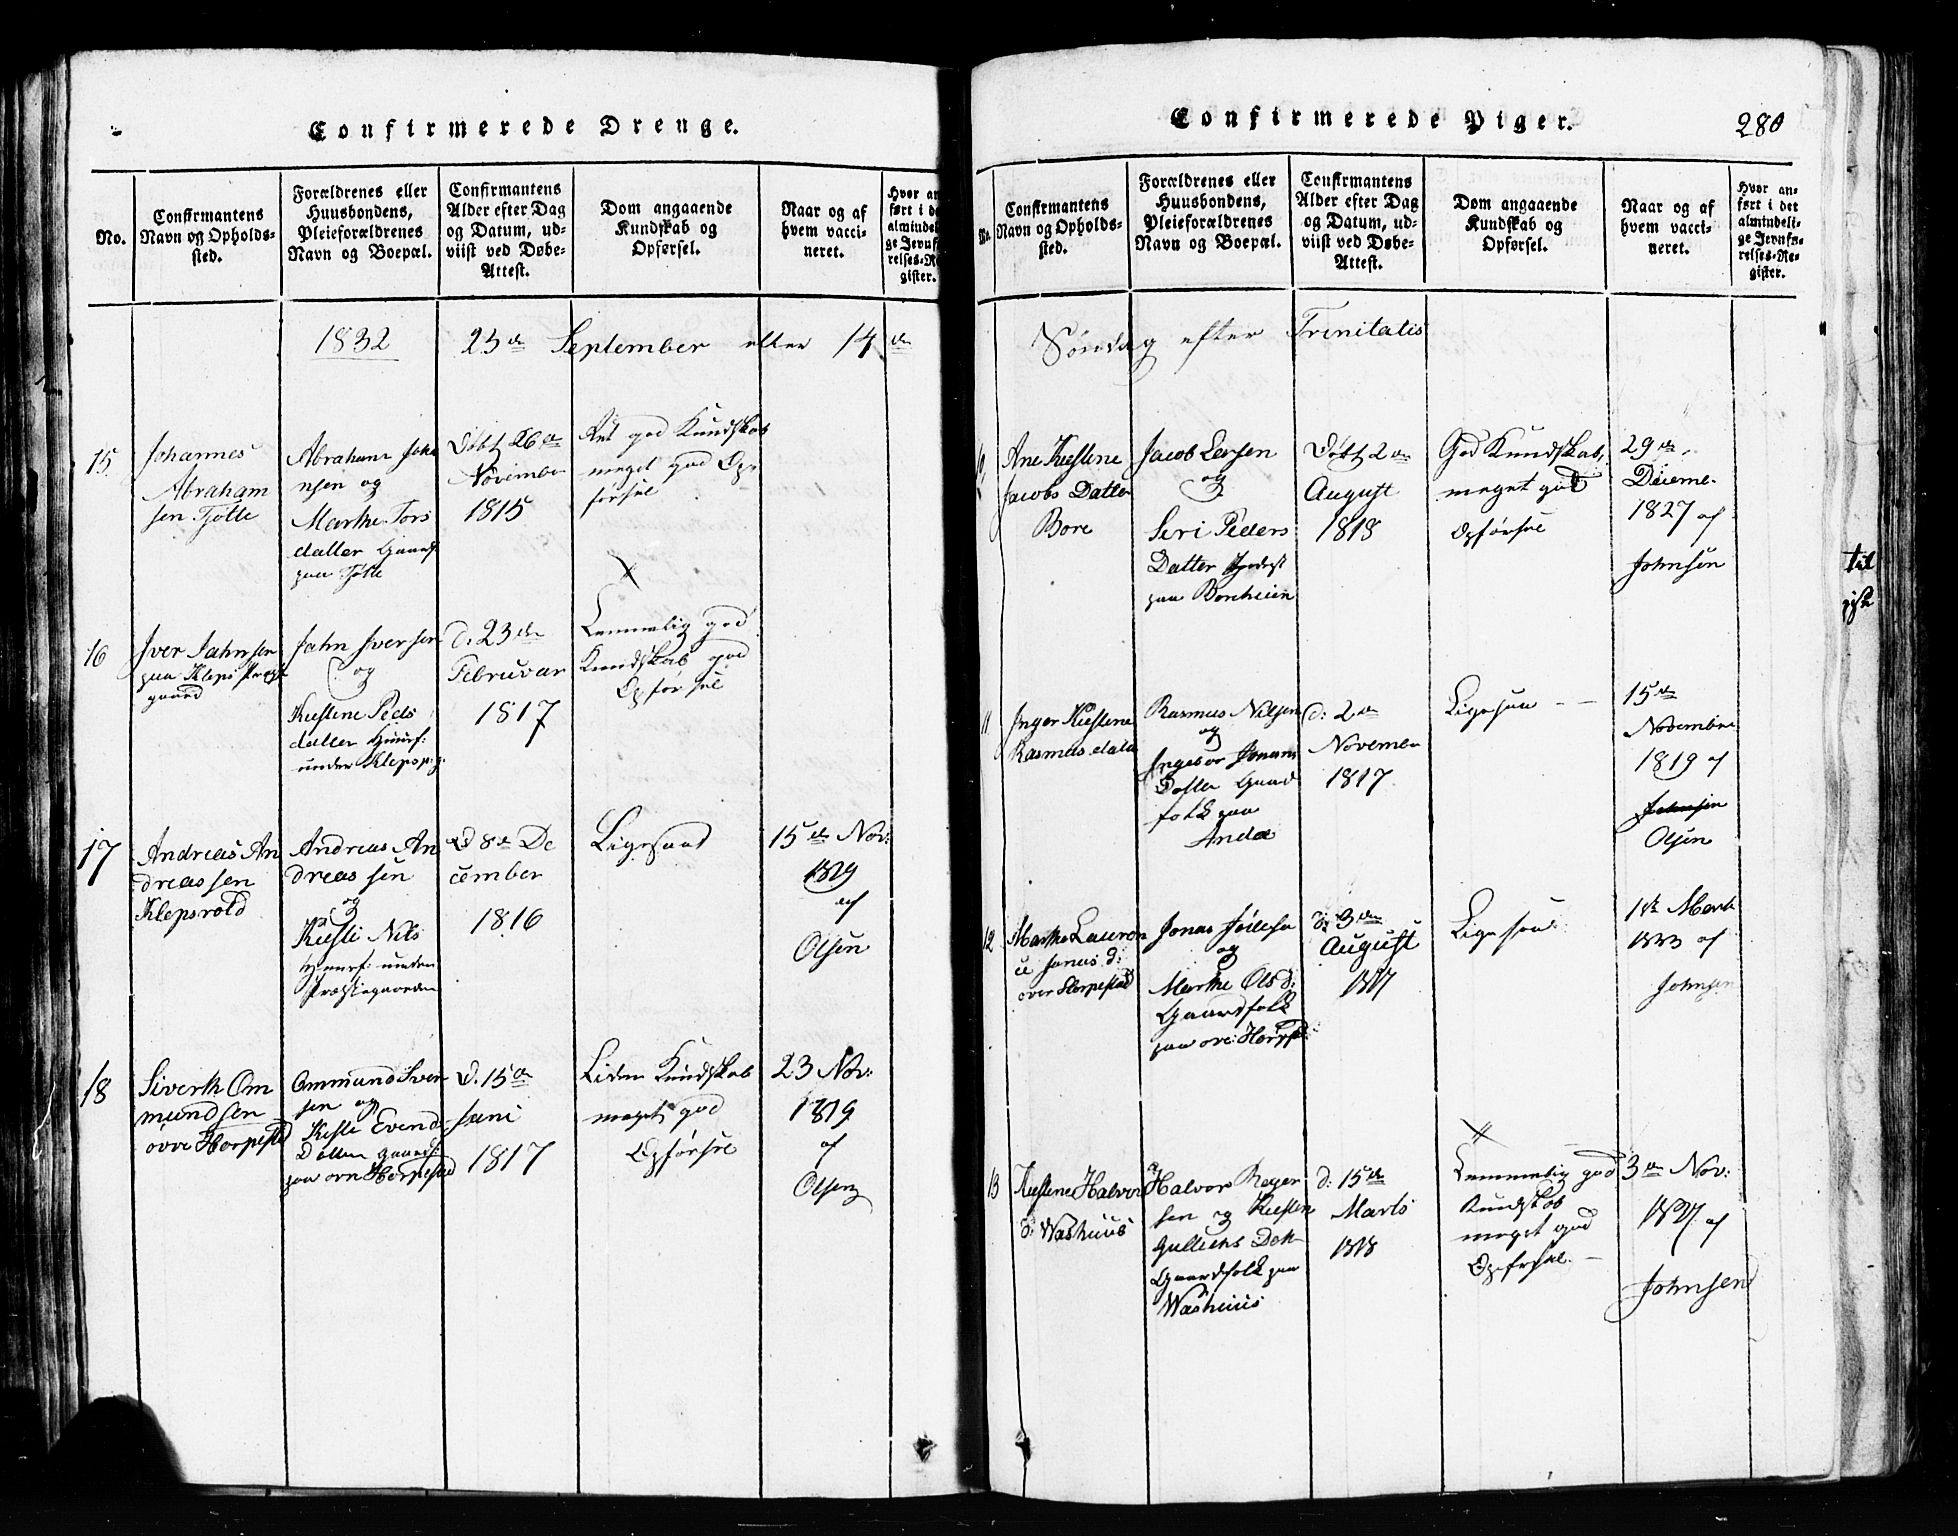 Confirmerede Drenge.
No.
Confirmantens
Navn og Opholds-
sted.
Forældrenes eller
Huusbondens,
Pleieforældrenes
Navn og Boepæl.
Confirmantens
Alder efter Dag
og Datum, ud-
viist ved Døbe-
Attest.
Dom angaaende
Kundskab og
Opførsel.
Naar og af
hvem vacci-
neret.
Hvor an
ført i de
almindel
ge Jevnf
relses-R
gister.
1832 23de September eller 14de
15
Johannes
Abraham
sen Tjøtte
Abraham Joha
nsen og
Marthe Tors
datter Gaardf
paa Tjøtte
Døbt 26de
November
1815
Ret god Kundskab
meget god Op
førsel
16
Iver Jahnsen
paa Kleps Præste
gaard
Jahn Iversen
og
Kirstene Peds
datter Huusf:
under Klepsp:g:
d: 23de
Februvar
1817
Temmelig god
Kundskab god
Opførsel
17
Andreas An
dreassen
Klepsvold
Andreas An
dreassen
og
Kirsti Nils
Huusf: under
Præstegaarden
d 8de De
cember
1816
Ligesaa
15de Nov:
1819
af
Olsen
18
Siverth Om
mundsen
ovre Horpestd
Ommund Iver
sen og
Kisti Evend
Datter Gaardf:
paa ovre Horpestad
d. 15de
Juni
1817
Liden Kundskab
meget god
Opførsel
23 Nov:
1819
af
Olsen
Confirmerede Piger.
280
No.
Confirmantens
Navn og Opholds-
sted.
Forældrenes eller
Huusbondens,
Pleieforældrenes
Navn og Boepæl.
Confirmantens
Alder efter Dag
og Datum, ud-
viist ved Døbe-
Attest.
Dom angaaende
Kundskab og
Opførsel.
Naar og af
hvem vacci-
neret.
Hvor an-
ført i det
almindeli-
ge Jevnfø-
relses-Re-
gister.
Søndag efter Trinitatis
10
Ane Kirstene
Jacobs Datter
Bore
Jacob Larsen
og
Siri Peders
Datter
paa Boreheim
Døbt 2de
August
1818
God Kundskab,
meget god
Opførsel
29de
Deceme.
1827 af
Johnsen
11
Inger Kirstene
Rasmusdatter
Rasmus Nilsen
og
Ingebor
Datter Gaard
folk paa
Anda
d: 2de
Novemer
1817
Ligesaa
15de
November
1819 af
Johnsen
Olsen
12
Marthe Lauren
ce Jonas d:
over Horpestad
Jonas
og
Marthe Ols d:
Gaardfolk
paa ovr: Horpst:
d: 3de
August
1817
Ligesaa
1te Marts
1823 af
Johnsen
13
Kirstene Halvor
d: Washuus
Halvor Reger
sen og Kirsten
Gullichs Datt
Gaardfolk paa
Washuus
d: 15de
Marts
1818
Temmelig god
Kundskab
meget god
Opførsel.
3de Nov:
1827 af
Johnsen
til